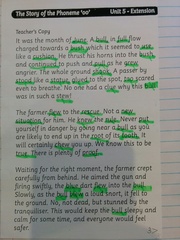 The Story of the Phoneme 'oo' Unit 5 - Extension
Teacher's Copy
It was the month of June. A bull, in full flow
charged towards a bush which it seemed to use
like a cushion. He thrust his horns into the bush
and continued to push and pull as he grew
angrier. The whole ground shook. A passer by
stood like a statue, glued to the spot, too scared
even to breathe. No one had a clue why this bull
was in such a stew!
The farmer flew to the rescue. Not a new
situation for him. He knew the rule. Never put
yourself in danger by going near a bull as you
are likely to end up in the root of its tooth, it
will certainly chew you up. We know this to be
true. There is plenty of proof.
Waiting for the right moment, the farmer crept
carefully from behind. He aimed the gun and
firing swiftly, the blue dart flew into the bull
Slowly, as the bull blew a loud snort, it fell to
the ground. No, not dead, but stunned by the
tranquilizer. This would keep the bull sleepy and
calm for some time, and everyone would feel
safer.